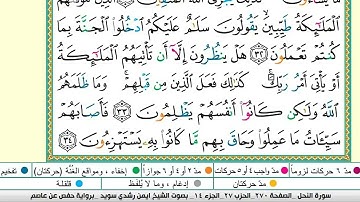 ٱلْمَلَٰٓئِكَةُ طَيِّبِينَ يَقُولُونَ سَلَٰمٌ عَلَيْكُمُ ٱدْخُلُوا۟ ٱلْجَنَّةَ بِمَا
كُنتُمْ تَعْمَلُونَ ٣٢ هَلْ يَنظُرُونَ إِلَّآ أَن تَأْتِيَهُمُ ٱلْمَلَٰٓئِكَةُ
أَوْ يَأْتِىَ أَمْرُ رَبِّكَ كَذَٰلِكَ فَعَلَ ٱلَّذِينَ مِن قَبْلِهِمْ وَمَا ظَلَمَهُمُ
ٱللَّهُ وَلَٰكِن كَانُوٓا۟ أَنفُسَهُمْ يَظْلِمُونَ ٣٣ فَأَصَابَهُمْ
سَيِّـَٔاتُ مَا عَمِلُوا۟ وَحَاقَ بِهِم مَّا كَانُوا۟ بِهِۦ يَسْتَهْزِءُونَ ٣٤
مدّ ٦ حركات لزوماً مدّ ٢ أو ٤ أو ٦ جوازاً إخفاء، ومواقع الغُنَّة (حركتان) تفخيم
مدّ واجب ٤ أو ٥ حركات مدّ حركتان إدغام، وما لا يُلفَظ قلقلة
سورة النحل - الصفحة ٢٧٠ - الحزب ٢٧ - الجزء ١٤ - بصوت الشيخ أيمن رشدي سويد - برواية حفص عن عاصم